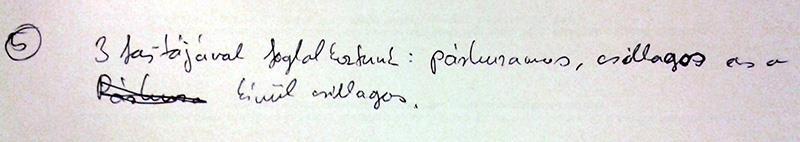 5 3 fajtájával foglalkoztunk: párhuzamos, csillagos és a
Párhuza kívül csillagos.